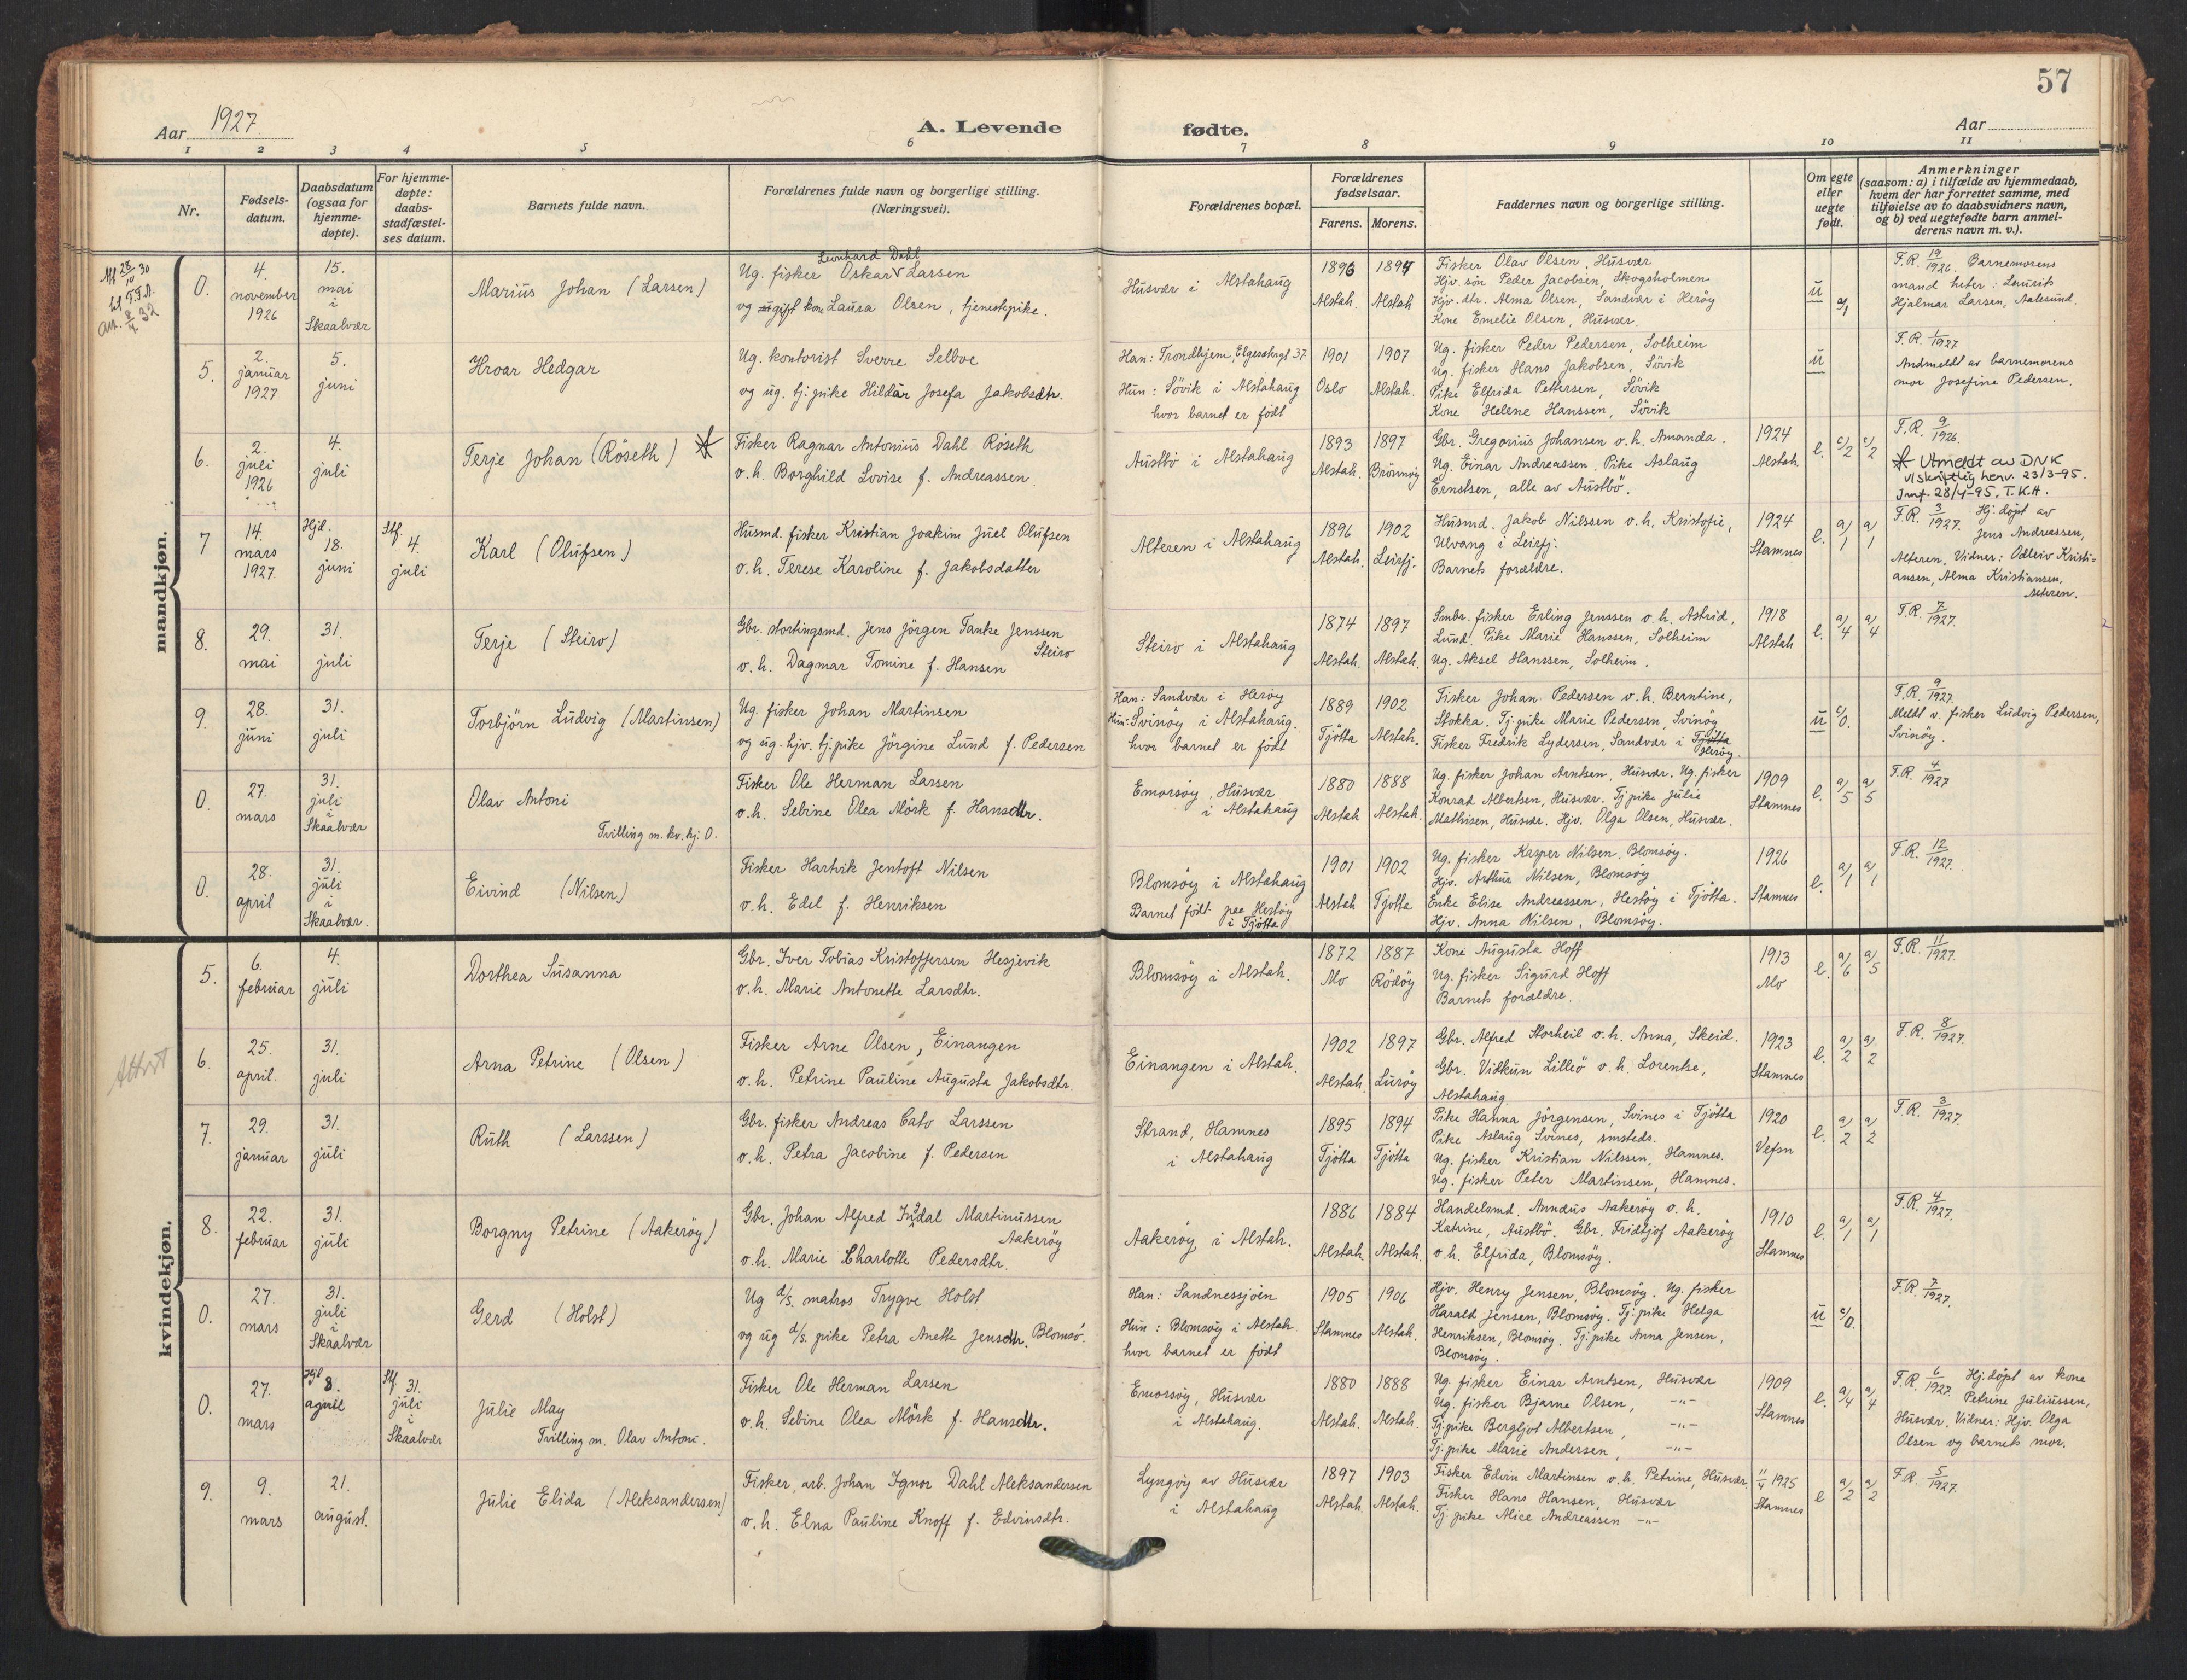 57
Aar 1927
A. Levende fødte.
Aar
1 2 3 4 5 6 7 8 9 10 11
Nr.
Fødsels-
datum.
Daabsdatum
(ogsaa for
hjemme-
døpte).
For hjemme-
døpte:
daabs-
stadfæstel-
ses datum.
Barnets fulde navn.
Forældrenes fulde navn og borgerlige stilling.
(Næringsvei).
Forældrenes bopæl.
Forældrenes
fødselsaar.
Farens. Morens.
Faddernes navn og borgerlige stilling.
Om egte
eller
uegte
født.
Anmerkninger
(saasom: a) i tilfælde av hjemmedaab,
hvem der har forrettet samme, med
tilføielse av to daabsvidners navn,
og b) ved uegtefødte barn anmel-
derens navn m. v.).
mandkjøn.
0.
4.
november
1926
15.
mai
i
Skaalvær
Marius Johan (Larsen)
Leonhard Dahl
Ug. fisker Oskar Larsen
og ugift kone Laura Olsen, tjenestepike.
Husvær i Alstahaug
1896 1894
Alstah. Alstah.
Fisker Olav Olsen, Husvær
Hjv. søn Peder Jacobsen, Skogsholmen
Hjv. dtr. Alma Olsen, Sandvær i Herøy
Kone Emelie Olsen, Husvær.
u a/1
F.R. 19/1926. Barnemorens
mand heter: Laurits
Hjalmar Larsen, Aalesund.
5.
2.
januar
1927
5.
juni
Hroar Hedgar
Ug. kontorist Sverre Selboe
og ug. tj. pike Hildur Josefa Jakobsdtr.
Han: Trondhjem, Elgesetergt 37
Hun: Søvik i Alstahaug
hvor barnet er født
1901 1907
Oslo Alstah.
Ug. fisker Peder Pedersen, Solheim
Ug. fisker Hans Jakobsen, Søvik
Pike Elfrida Pettersen, Søvik
Kone Helene Hanssen, Søvik
u
F.R. 1/1927
Andmeldt av barnemorens
mor Josefine Pedersen.
6.
2.
juli
1926
4.
juli
Terje Johan (Röseth) *
Fisker Ragnar Antonius Dahl Röseth
o. h. Borghild Lovise f. Andreassen.
Austbö i Alstahaug
1893 1897
Alstah. Brönnöy
Gbr. Gregorius Johansen o. h. Amanda.
Ug. Einar Andreassen. Pike Aslaug
Ernstsen, alle av Austbö.
1924
Alstah.
e. c/2 c/2
F.R. 9/1926.
* Utmeldt av DNK
v/skriftlig henv. 23/3-95.
Innf. 28/4-95, T.K.H.
7
14.
mars
1927.
Hjd.
18.
juni
Stf.
4.
juli
Karl (Olufsen)
Husmd. fisker Kristian Joakim Juel Olufsen
o. h. Terese Karoline f. Jakobsdatter
Alteren i Alstahaug
1896 1902
Alstah. Leirfj.
Husmd. Jakob Nilssen o. h. Kristofie,
Ulvang i Leirfj.
Barnets forældre.
1924
Stamnes
e. a/1 a/1
F.R. 3/1927. Hj. døpt av
Jens Andreassen,
Alteren. Vidner: Odleiv Kristi-
ansen, Alma Kristiansen,
Alteren.
8.
29.
mai
31.
juli
Terje (Steiro)
Gbr. stortingsmd. Jens Jörgen Tanke Jenssen
Steiro
o. h. Dagmar Tomine f. Hansen
Steiro i Alstahaug
1874 1897
Alstah. Alstah.
Smbr. fisker Erling Jenssen o. h. Astrid,
Lund. Pike Marie Hanssen, Solheim
Ug. Aksel Hanssen, Solheim.
1918
Alstah
e. a/4 a/4
F.R. 7/1927.
9.
28.
juni
31.
juli
Torbjörn Ludvig (Martinsen)
Ug. fisker Johan Martinsen
og ug. hjv. tj. pike Jörgine Lund f. Pedersen
Han: Sandvær i Herøy
Hun: Svinöy i Alstahaug.
hvor barnet er født
1889 1902
Tjötta Alstah.
Fisker Johan Pedersen o. h. Berntine,
Stokka. Tj. pike Marie Pedersen, Svinöy
Fisker Fredrik Lydersen, Sandvær i Tjötta
Herøy.
u c/0.
F.R. 9/1927.
Meldt v. fisker Ludvig Pedersen,
Svinöy.
0.
27.
mars
31.
juli
i
Skaalvær
Olav Antoni
Tvilling m. kv. kj. 0.
Fisker Ole Herman Larsen
o. h. Sebine Olea Mörk f. Hansdtr.
Emorsöy, Husvær
i Alstahaug
1880 1888
Alstah Alstah.
Ug. fisker Johan Arntsen, Husvær. Ug. fisker
Konrad Albertsen, Husvær. Tj. pike Julie
Mathisen, Husvær. Hjv. Olga Olsen, Husvær.
1909
Stamnes
e. a/5 a/5
F.R. 4/1927
0.
28.
april
31.
juli
i
Skaalvær.
Eivind (Nilsen)
Fisker Hartvik Jentoft Nilsen
o. h. Edel f. Henriksen
Blomsöy i Alstahaug
Barnet født paa Hestöy
i Tjötta
1901 1902
Alstah Tjötta
Ug. fisker Kasper Nilsen, Blomsöy.
Hjv. Arthur Nilsen, Blomsöy
Enke Elise Andreassen, Hestöy i Tjötta.
Hjv. Anna Nilsen, Blomsöy.
1926
Stamnes
e. a/1 a/1
F.R. 12/1927.
kvindekjøn.
5.
6.
februar
4.
juli
Dorthea Susanna
Gbr. Iver Tobias Kristoffersen Hesjevik
o. h. Marie Antonette Larsdtr.
Blomsöy i Alstah.
1872 1887
Mo Rödöy
Kone Augusta Hoff
Ug. fisker Sigurd Hoff
Barnets forældre.
1913
Mo
e. a/6 a/5
F.R. 11/1927.
6.
25.
april.
31.
juli
Arna Petrine (Olsen)
Fisker Arne Olsen, Einangen
o. h. Petrine Pauline Augusta Jakobsdtr.
Einangen i Alstah.
1902 1897
Alstah. Luröy
Gbr. Alfred Storheil o. h. Anna, Skeid.
Gbr. Vidkun Lilleö o. h. Lorentse,
Alstahaug.
1923
Stamnes
e. a/2 a/2
F.R. 8/1927.
7.
29.
januar
31.
juli
Ruth (Larssen)
Gbr. fisker Andreas Cato Larssen
o. h. Petra Jacobine f. Pedersen
Strand, Hamnes
i Alstahaug
1895 1894
Tjötta Tjötta
Pike Hanna Jörgensen, Svines i Tjötta
Pike Aslaug Svines, smsteds.
Ug. fisker Kristian Nilssen, Hamnes.
Ug. fisker Peter Martinsen, Hamnes.
1920
Vefsn
e. a/2 a/2
F.R. 3/1927.
8.
22.
februar
31.
juli
Borgny Petrine (Aakeröy)
Gbr. Johan Alfred Indal Martinussen
Aakeröy
o. h. Marie Charlotte Pedersdtr.
Aakeröy i Alstah.
1886 1884
Alstah. Alstah.
Handelsmd. Annæus Aakeröy o. h.
Katrine, Austbö. Gbr. Fridtjof Aakeröy
o. h. Elfrida, Blomsöy.
1910
Stamnes
e. a/1 a/1
F.R. 4/1927.
0.
27.
mars
31.
juli
i
Skaalvær
Gerd (Holst)
Ug d/s. matros Trygve Holst
og ug d/s. pike Petra Anette Jensdtr. Blomsö.
Han: Sandnessjöen
Hun: Blomsöy i Alstah.
hvor barnet er født
1905 1906
Stamnes Alstah.
Hjv. Henry Jensen, Blomsöy. Ug. fisker
Harald Jensen, Blomsöy. Tj. pike Helga
Henriksen, Blomsöy. Tj. pike Anna Jensen,
Blomsöy.
u c/0.
F.R. 7/1927.
0.
27.
mars
Hjd
8.
april
Stf.
31.
juli
i
Skaalvær
Julie May
Tvilling m. Olav Antoni.
Fisker Ole Herman Larsen
o. h. Sebine Olea Mörk f. Hansdtr.
Emorsöy, Husvær
i Alstahaug.
1880 1888
Alstah. Alstah.
Ug. fisker Einar Arntsen, Husvær
Ug. fisker Bjarne Olsen, -"-
Tj. pike Bergljot Albertsen, -"-
Tj. pike Marie Andersen, -"-
1909
Stamnes
e. a/4 a/4
F.R. 6/1927. Hj. døpt av kone
Petrine Juliussen,
Husvær. Vidner: Hjv. Olga
Olsen og barnets mor.
9.
9.
mars
21.
august.
Julie Elida (Aleksandersen)
Fisker, arb. Johan Ignor Dahl Aleksandersen
o. h. Elna Pauline Knoff f. Edvinsdtr.
Lyngöy av Husvær
i Alstahaug
1897 1903
Alstah. Alstah.
Fisker Edvin Martinsen o. h. Petrine, Husvær
Fisker Hans Hansen, Husvær
Tj. pike Alice Andreassen -"-
11/4 1925
Stamnes
e a/2 a/2
F.R. 5/1927.